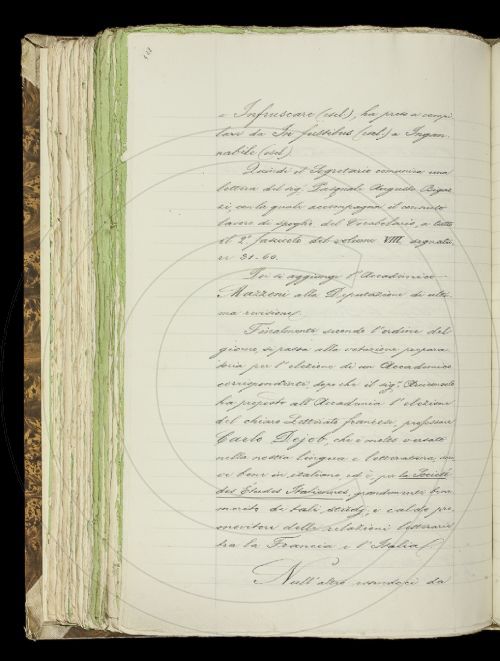 a Infruscare (escl.), ha preso a compi-
lare da In fustibus (escl.) a Ingan-
nabile (escl.)
Quindi il Segretario comunica una
lettera del sig. Pasquale Augusto Bigaz-
zi, con la quale accompagna il consueto
lavoro di spoglio del Vocabolario, a tutto
il 2º fascicolo del volume VIII, segnatu-
re 31-60.
Poi si aggiunge l'Accademico
Mazzoni alla Deputazione di ulti-
ma revisione.
Finalmente, secondo l'ordine del
giorno, si passa alla votazione prepara-
toria per l'elezione di un Accademico
corrispondente, dopo che il sig.
ha proposto all'Accademia l'elezione
del chiaro Letterato francese, professore
Carlo Dejob, che è molto versato
nella nostra lingua e letteratura,
ve bene in italiano ed è, per la Société
des Études Italiennes, grandemente bene-
merito di tali studj, e caldo pro-
motore delle relazioni letterarie
tra la Francia e l'Italia.
Null'altro essendoci da